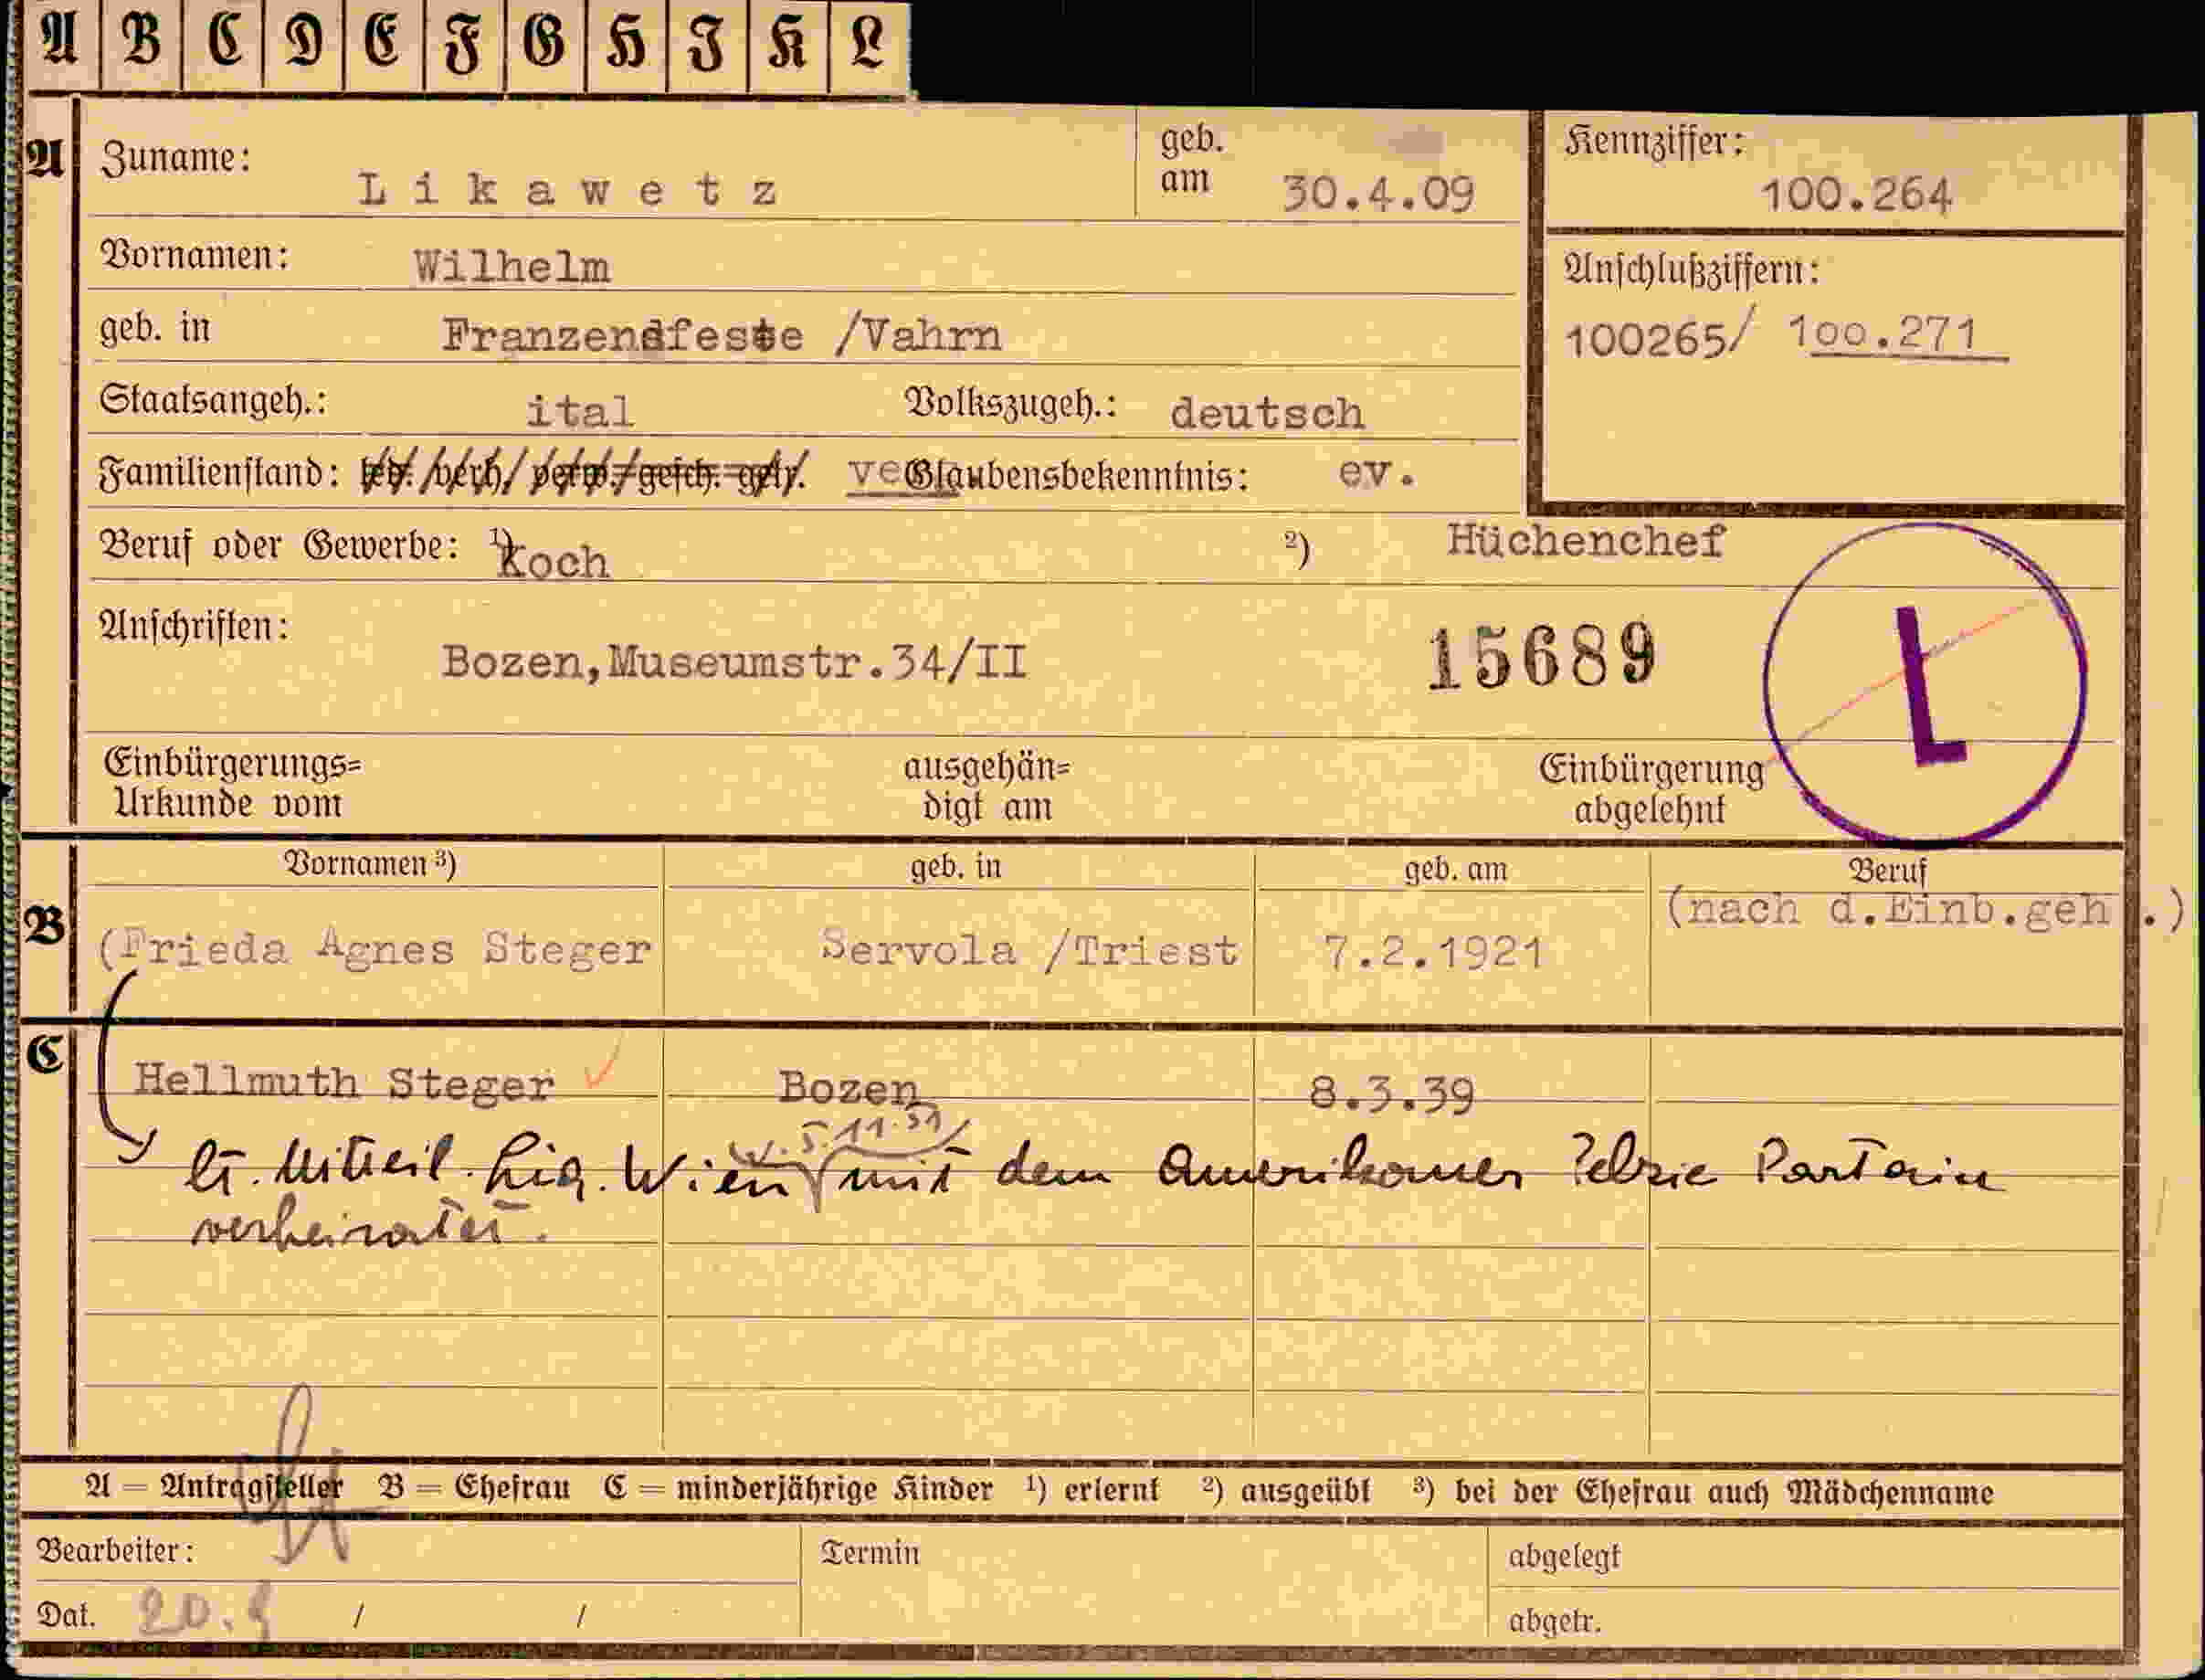 A B C D E F G H I K L
A Zuname: Likawetz geb. am 30.4.09 Kennziffer: 100.264
Vornamen: Wilhelm
geb. in Franzensfeste /Vahrn Anschlußziffern: 100265/ 100.271
Staatsangeh.: ital Volkszugeh.: deutsch
Familienstand: led. / verh. / verw. / gesch. getr. Glaubensbekenntnis: ev.
Beruf oder Gewerbe: 1) Koch 2) Hüchenchef
Anschriften: Bozen,Museumstr.34/II 15689 L
Einbürgerungs= Urkunde vom ausgehän= digt am Einbürgerung abgelehnt
Vornamen 3) geb. in geb. am Beruf
(nach d.Einb.geh.)
B (Frieda Agnes Steger Servola /Triest 7.2.1921
C Hellmuth Steger Bozen 8.3.39
5.11.51
lt. Mitteil. Lig. Wien mit dem Amerikaner Partain
verheiratet.
A = Antragsteller B = Ehefrau C = minderjährige Kinder 1) erlernt 2) ausgeübt 3) bei der Ehefrau auch Mädchenname
Bearbeiter: Termin abgelegt
Dat. 20. / / abgetr.